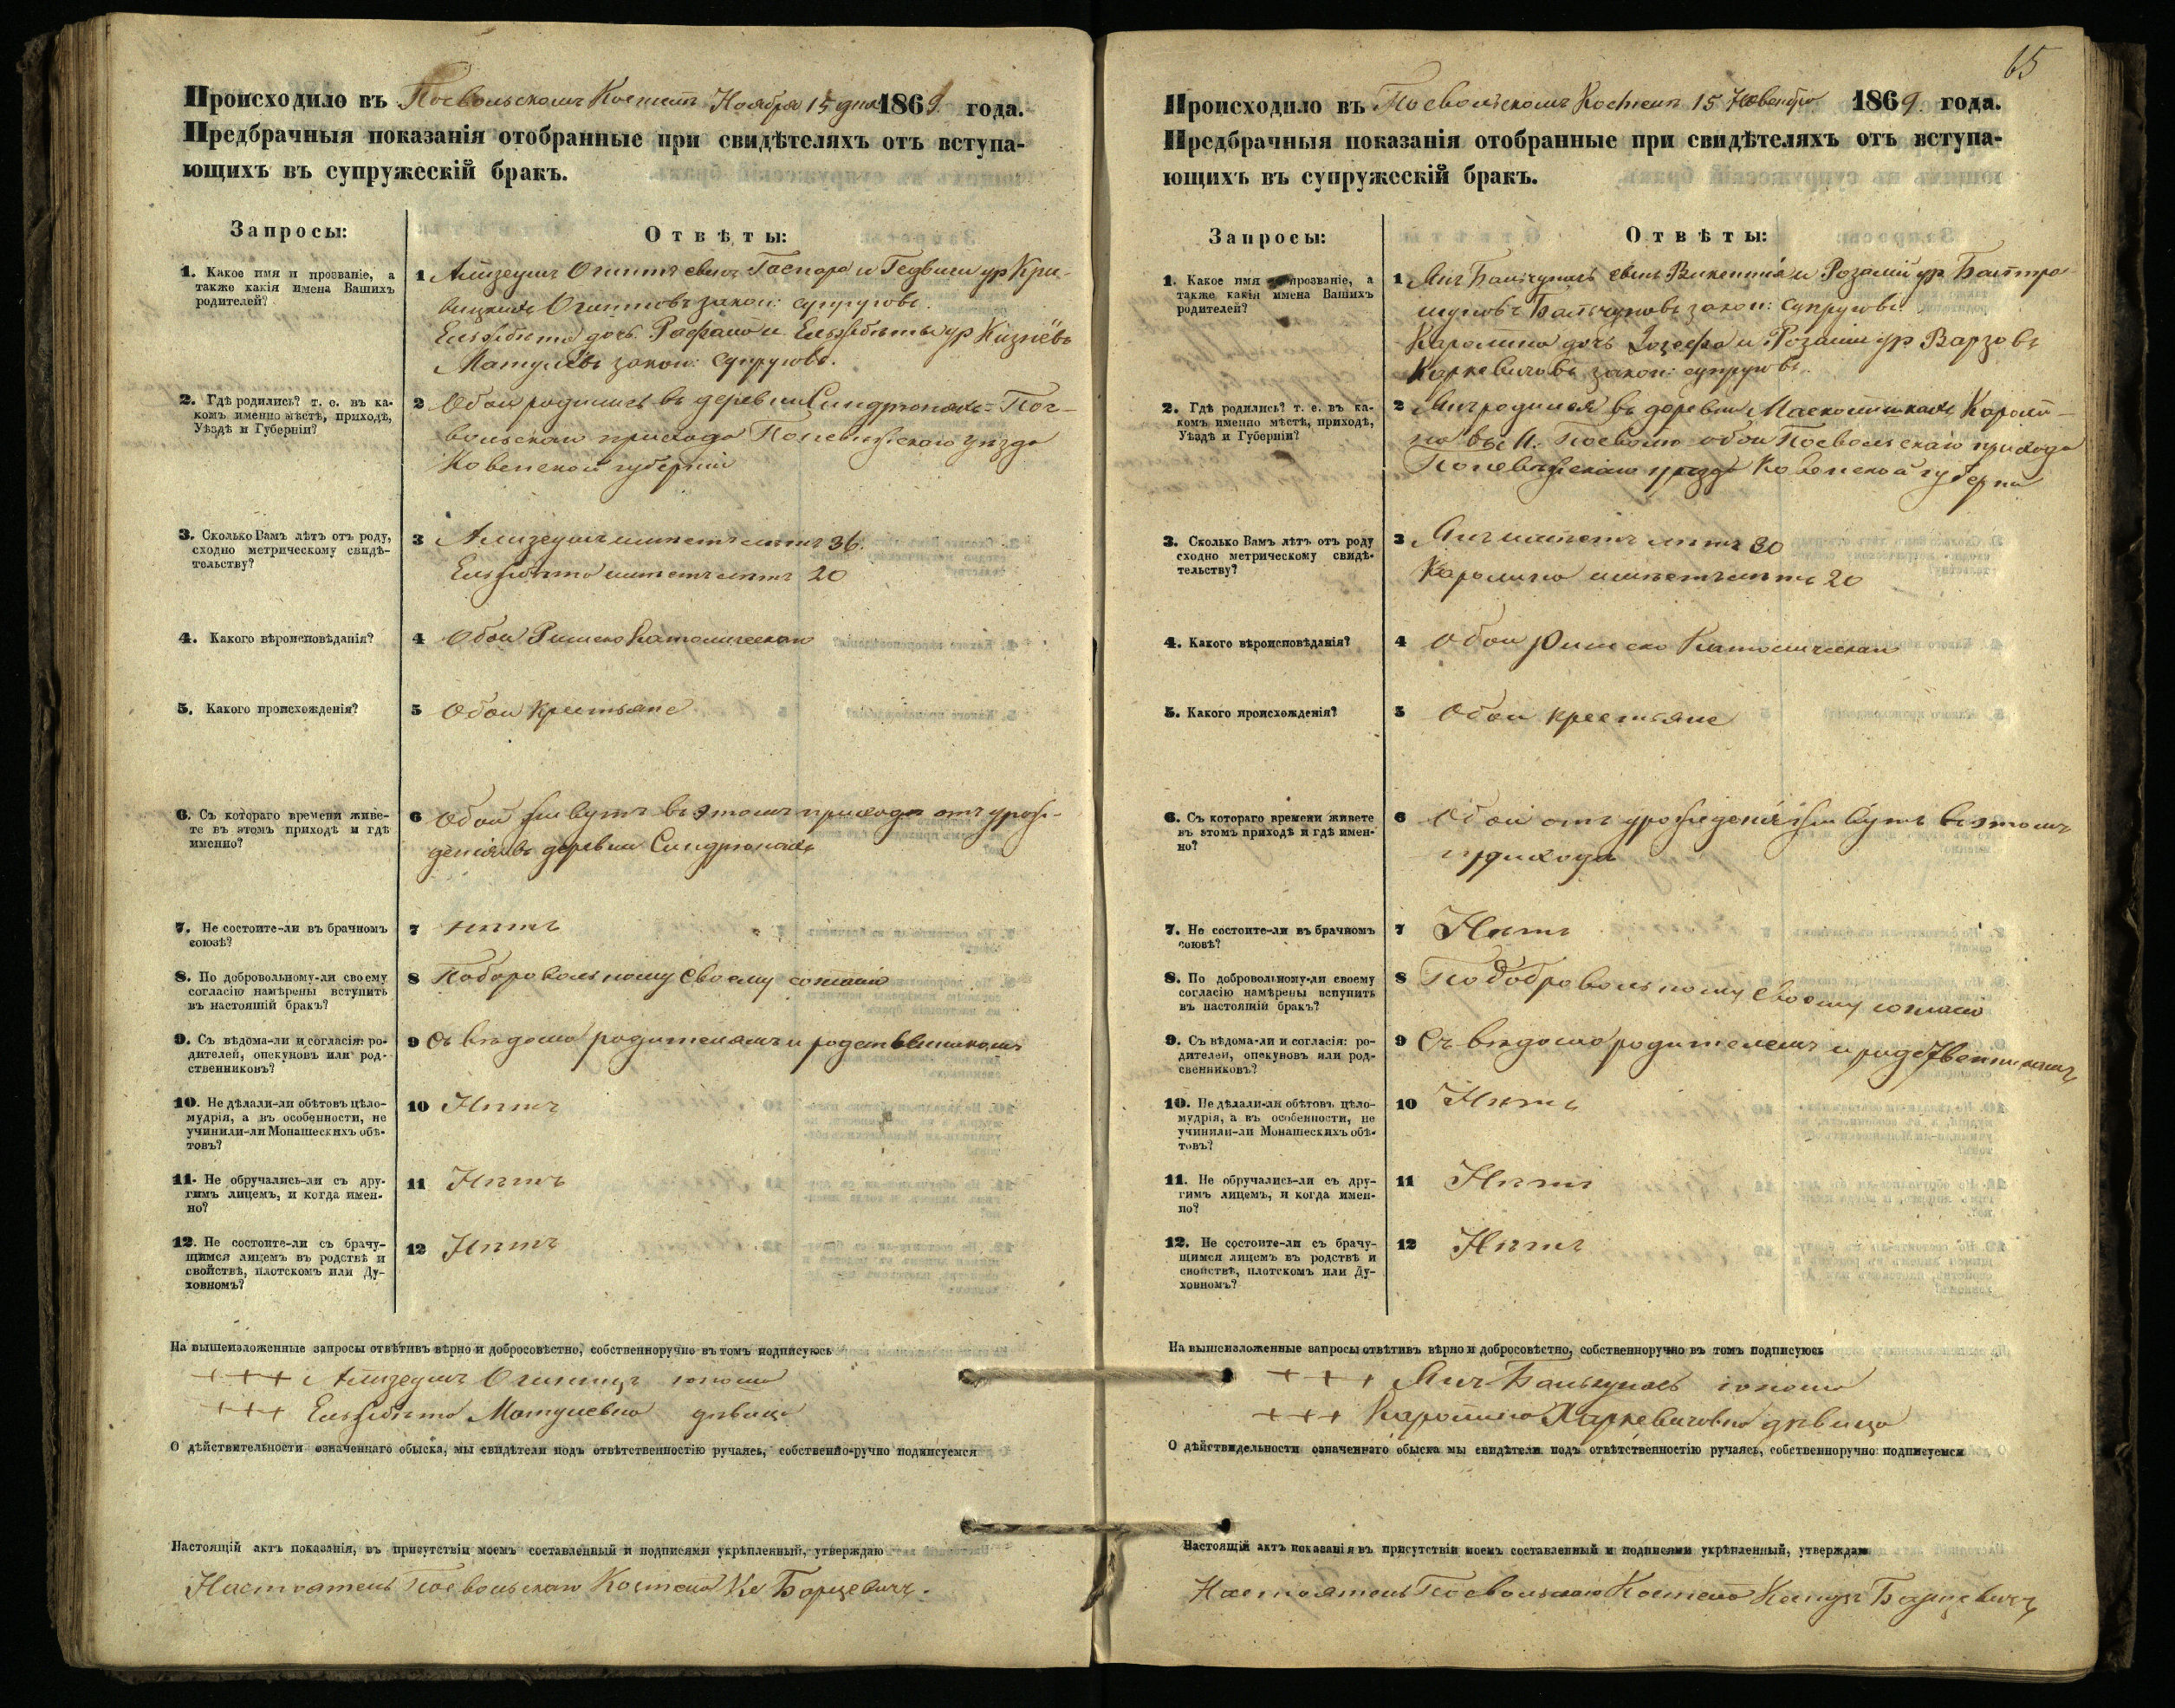 Происходило въ Посвольскомъ Костелѣ Ноября 15 дня 1869 года.
Предбрачныя показанія отобранные при свидѣтеляхъ отъ вступа-
ющихъ въ супружескій бракъ.
Запросы:
Отвѣты:
1. Какое имя и прозваніе, а
также какія имена Вашихъ
родителей?
1 сынъ Гаспара и Гедвиги ур Кри-
закон: супруговъ.
дочь Рафала и ур
закон: супруговъ.
2. Гдѣ родились? т. е. въ ка-
комъ именно мѣстѣ, приходѣ,
Уѣздѣ и Губерніи?
2 Обои родились въ деревни Пос-
вольскаго прихода Поневѣжскаго уѣзда
Ковенской губерніи
3. Сколько Вамъ лѣтъ отъ роду,
сходно метрическому свидѣ-
тельству?
3 имѣетъ лѣтъ 36.
имѣетъ лѣтъ 20
4. Какого вѣроисповѣданія?
4 Обои Римско Католическаго
5. Какого происхожденія?
5 Обои крестьяне
6. Съ котораго времени живе-
те въ этомъ приходѣ и гдѣ
именно?
6 Обои живутъ въ этомъ приходѣ отъ урож-
денія въ деревни
7. Не состоите-ли въ брачномъ
союзѣ?
7 нѣтъ
8. По добровольному-ли своему
согласію намѣрены вступить
въ настоящій бракъ?
8 своему согласію
9. Съ вѣдома-ли и согласія: ро-
дителей, опекуновъ или род-
ственниковъ?
9 Съ вѣдома
10. Не дѣлали-ли обѣтовъ цѣло-
мудрія, а въ особенности, не
учинили-ли Монашескихъ обѣ-
товъ?
10 Нѣтъ
11. Не обручались-ли съ дру-
гимъ лицемъ, и когда имен-
но?
11 Нѣтъ
12. Не состоите-ли съ брачу-
щимся лицемъ въ родствѣ и
свойствѣ, плотскомъ или Ду-
ховномъ?
12 Нѣтъ
На вышеизложенные запросы отвѣтивъ вѣрно и добросовѣстно, собственноручно въ томъ подписуюсь
+++ юноша
+++ дѣвица
О дѣйствительности означеннаго обыска, мы свидѣтели подъ отвѣтственностію ручаясь, собственно-ручно подписуемся
Настоящій актъ показанія, въ присутствіи моемъ составленный и подписями укрѣпленный, утверждаю
Настоятель Посвольскаго Костела Кс Борцевичъ.
65
Происходило въ Посвольскомъ Костелѣ 15 1869 года.
Предбрачныя показанія отобранные при свидѣтеляхъ отъ вступа-
ющихъ въ супружескій бракъ.
Запросы:
Отвѣты:
1. Какое имя и прозваніе, а
также какія имена Вашихъ
родителей?
1 Янъ сынъ Викентія и Розаліи ур
закон: супруговъ.
Каролина дочь Іозефа и Розаліи ур
закон: супруговъ.
2. Гдѣ родились? т. е. въ ка-
комъ именно мѣстѣ, приходѣ,
Уѣздѣ и Губерніи?
2 Янъ родился въ деревни Кароли-
на въ М. Посволю обои Посвольскаго прихода
Поневѣжскаго уѣзда Ковенской губерніи
3. Сколько Вамъ лѣтъ отъ роду
сходно метрическому свидѣ-
тельству?
3 Янъ имѣетъ лѣтъ 30
Каролина имѣетъ лѣтъ 20
4. Какого вѣроисповѣданія?
4 Обои Римско Католическаго
5. Какого происхожденія?
5 Обои крестьяне
6. Съ котораго времени живете
въ этомъ приходѣ и гдѣ имен-
но?
6 Обои отъ урожденія живутъ въ этомъ
приходѣ
7. Не состоите-ли въ брачномъ
союзѣ?
7 Нѣтъ
8. По добровольному-ли своему
согласію намѣрены вступить
въ настоящій бракъ?
8 По добровольному своему согласію
9. Съ вѣдома-ли и согласія: ро-
дителей, опекуновъ или род-
свенниковъ?
9 Съ вѣдома
10. Не дѣлали-ли обѣтовъ цѣло-
мудрія, а въ особенности, не
учинили-ли Монашескихъ обѣ-
товъ?
10 Нѣтъ
11. Не обручались-ли съ дру-
гимъ лицемъ, и когда имен-
но?
11 Нѣтъ
12. Не состоите-ли съ брачу-
щимся лицемъ въ родствѣ и
свойствѣ, плотскомъ или Ду-
ховномъ?
12 Нѣтъ
На вышеизложенные запросы отвѣтивъ вѣрно и добросовѣстно, собственноручно въ томъ подписуюсь
+++ Янъ юноша
+++ дѣвица
О дѣйствидельности означеннаго обыска мы свидѣтели подъ отвѣтственностію ручаясь, собственноручно подписуемся
Настоящій актъ показанія въ присутствіи моемъ составленный и подписями укрѣпленный, утверждаю
Настоятель Посвольскаго Костела Ксендзъ Борцевичъ